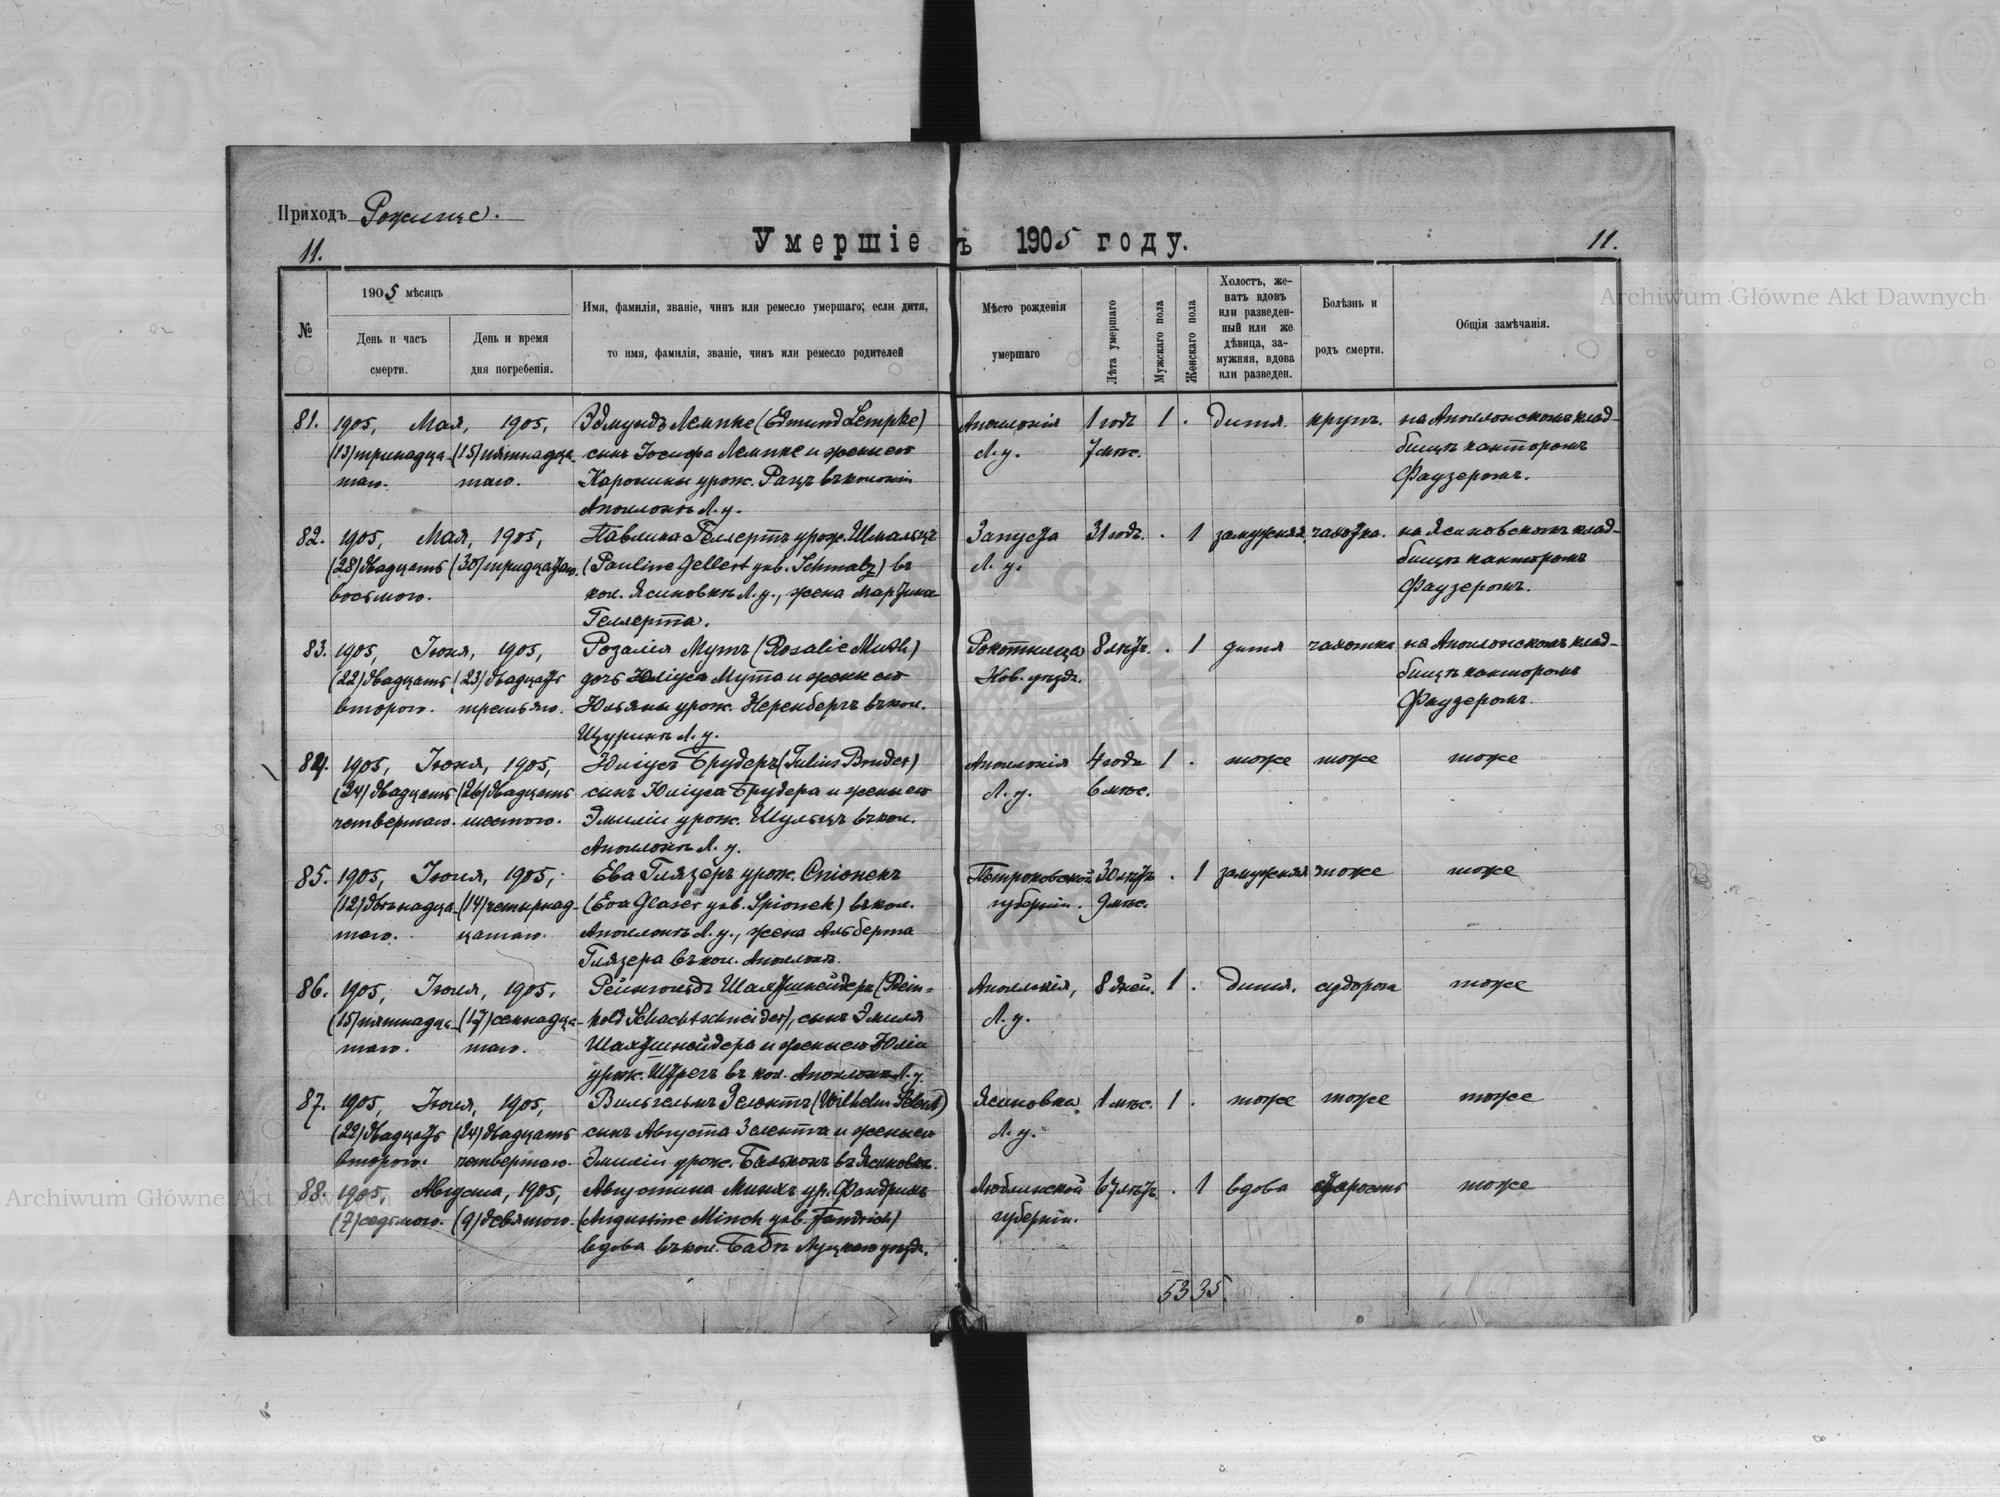 Приходъ Рожище.
11.
Умершіе въ 1905 году.
11.
№
1905 мѣсяцъ
День и часъ смерти.
День и время дня погребенія.
Имя, фамилія, званіе, чинъ или ремесло умершаго; если дитя,
то имя, фамилія, званіе, чинъ или ремесло родителей
Мѣсто рожденія
умершаго
Лѣта умершаго
Мужскаго пола
Женскаго пола
Холостъ, же-
натъ вдовъ
или разведен-
ный или же
дѣвица, за-
мужняя, вдова
или разведен.
Болѣзнь и
родъ смерти.
Общія замѣчанія.
81. 1905, Мая, 1905, Эдмундъ Лемпке (Edmund Lempke) Аполонія 1 годъ 1 . дитя. крупъ. на Аполонскомъ клад-
(13) тринадца- (15) пятнадца- сынъ Іосифа Лемпке и жены его Л. у. 7 мѣс. бищѣ канторомъ
таго. таго. Каролины урож. Рацъ въ колоніи Фаузеромъ.
Аполлонѣ Л. у.
82. 1905, Мая, 1905, Павлина Геллертъ урож. Шмальцъ Запуста 31 годъ. . 1 замужняя чахотка. на Ясиновскомъ клад-
(28) двадцать (30) тридцатаго. (Pauline Gellert geb. Schmalz) въ Л. у. бищѣ канторомъ
восьмого. кол. Ясиновкѣ Л. у., жена Мартина Фаузеромъ.
Геллерта.
83. 1905, Іюня, 1905, Розалія Мутъ (Rosalie Muth) Рокотница 8 лѣтъ. . 1 дитя чахотка на Аполонскомъ клад-
(22) двадцать (23) двадцать дочь Юліуса Мута и жены его Нов. уѣзд. бищѣ канторомъ
второго. третьяго. Юльяны урож. Неренбергъ въ кол. Фаузеромъ.
Щуринѣ Л. у.
84. 1905, Іюня, 1905, Юліусъ Брудеръ (Julius Bruder) Аполонія 4 года 1 . тоже тоже тоже
(24) двадцать (26) двадцать сынъ Юліуса Брудера и жены его Л. у. 6 мѣс.
четвертаго. шестого. Эмиліи урож. Шульцъ въ кол.
Аполлонѣ Л. у.
85. 1905, Іюля, 1905, Ева Глязеръ урож. Спіонекъ Петроковской 30 лѣтъ . 1 замужняя тоже тоже
(12) двѣнадца- (14) четырнад- (Eva Glaser geb. Spionek) въ кол. губерніи. 9 мѣс.
таго. цатаго. Аполлонѣ Л. у., жена Альберта
Глязера въ кол. Аполлонѣ.
86. 1905, Іюля, 1905, Рейнгольдъ Шахтшнейдеръ (Rein- Аполонія, 8 дней. 1 . дитя. судорога тоже
(15) пятнадца- (17) семнадца- hold Schachtschneider), сынъ Эмиля Л. у.
таго. таго. Шахтшнейдера и жены его Юліи
въ кол. Аполлонѣ Л. у.
87. 1905, Іюля, 1905, Вильгельмъ Зелентъ (Wilhelm Selent) Ясиновка 1 мѣс. 1 . тоже тоже тоже
(22) двадцать (24) двадцать сынъ Августа Зелента и жены его Л. у.
второго. четвертаго. Эмиліи урож. въ Ясиновкѣ.
88. 1905, Августа, 1905, Августина Минхъ ур. Фандрихъ Люблинской 67 лѣтъ . 1 вдова старость тоже
(7) седьмого. (9) девятого. (Augustine Minch geb. Fandrich) губерніи.
вдова въ кол. Бабѣ Луцкаго уѣзд.
53 35.
Archiwum Główne Akt Dawnych
Archiwum Główne Akt Dawnych